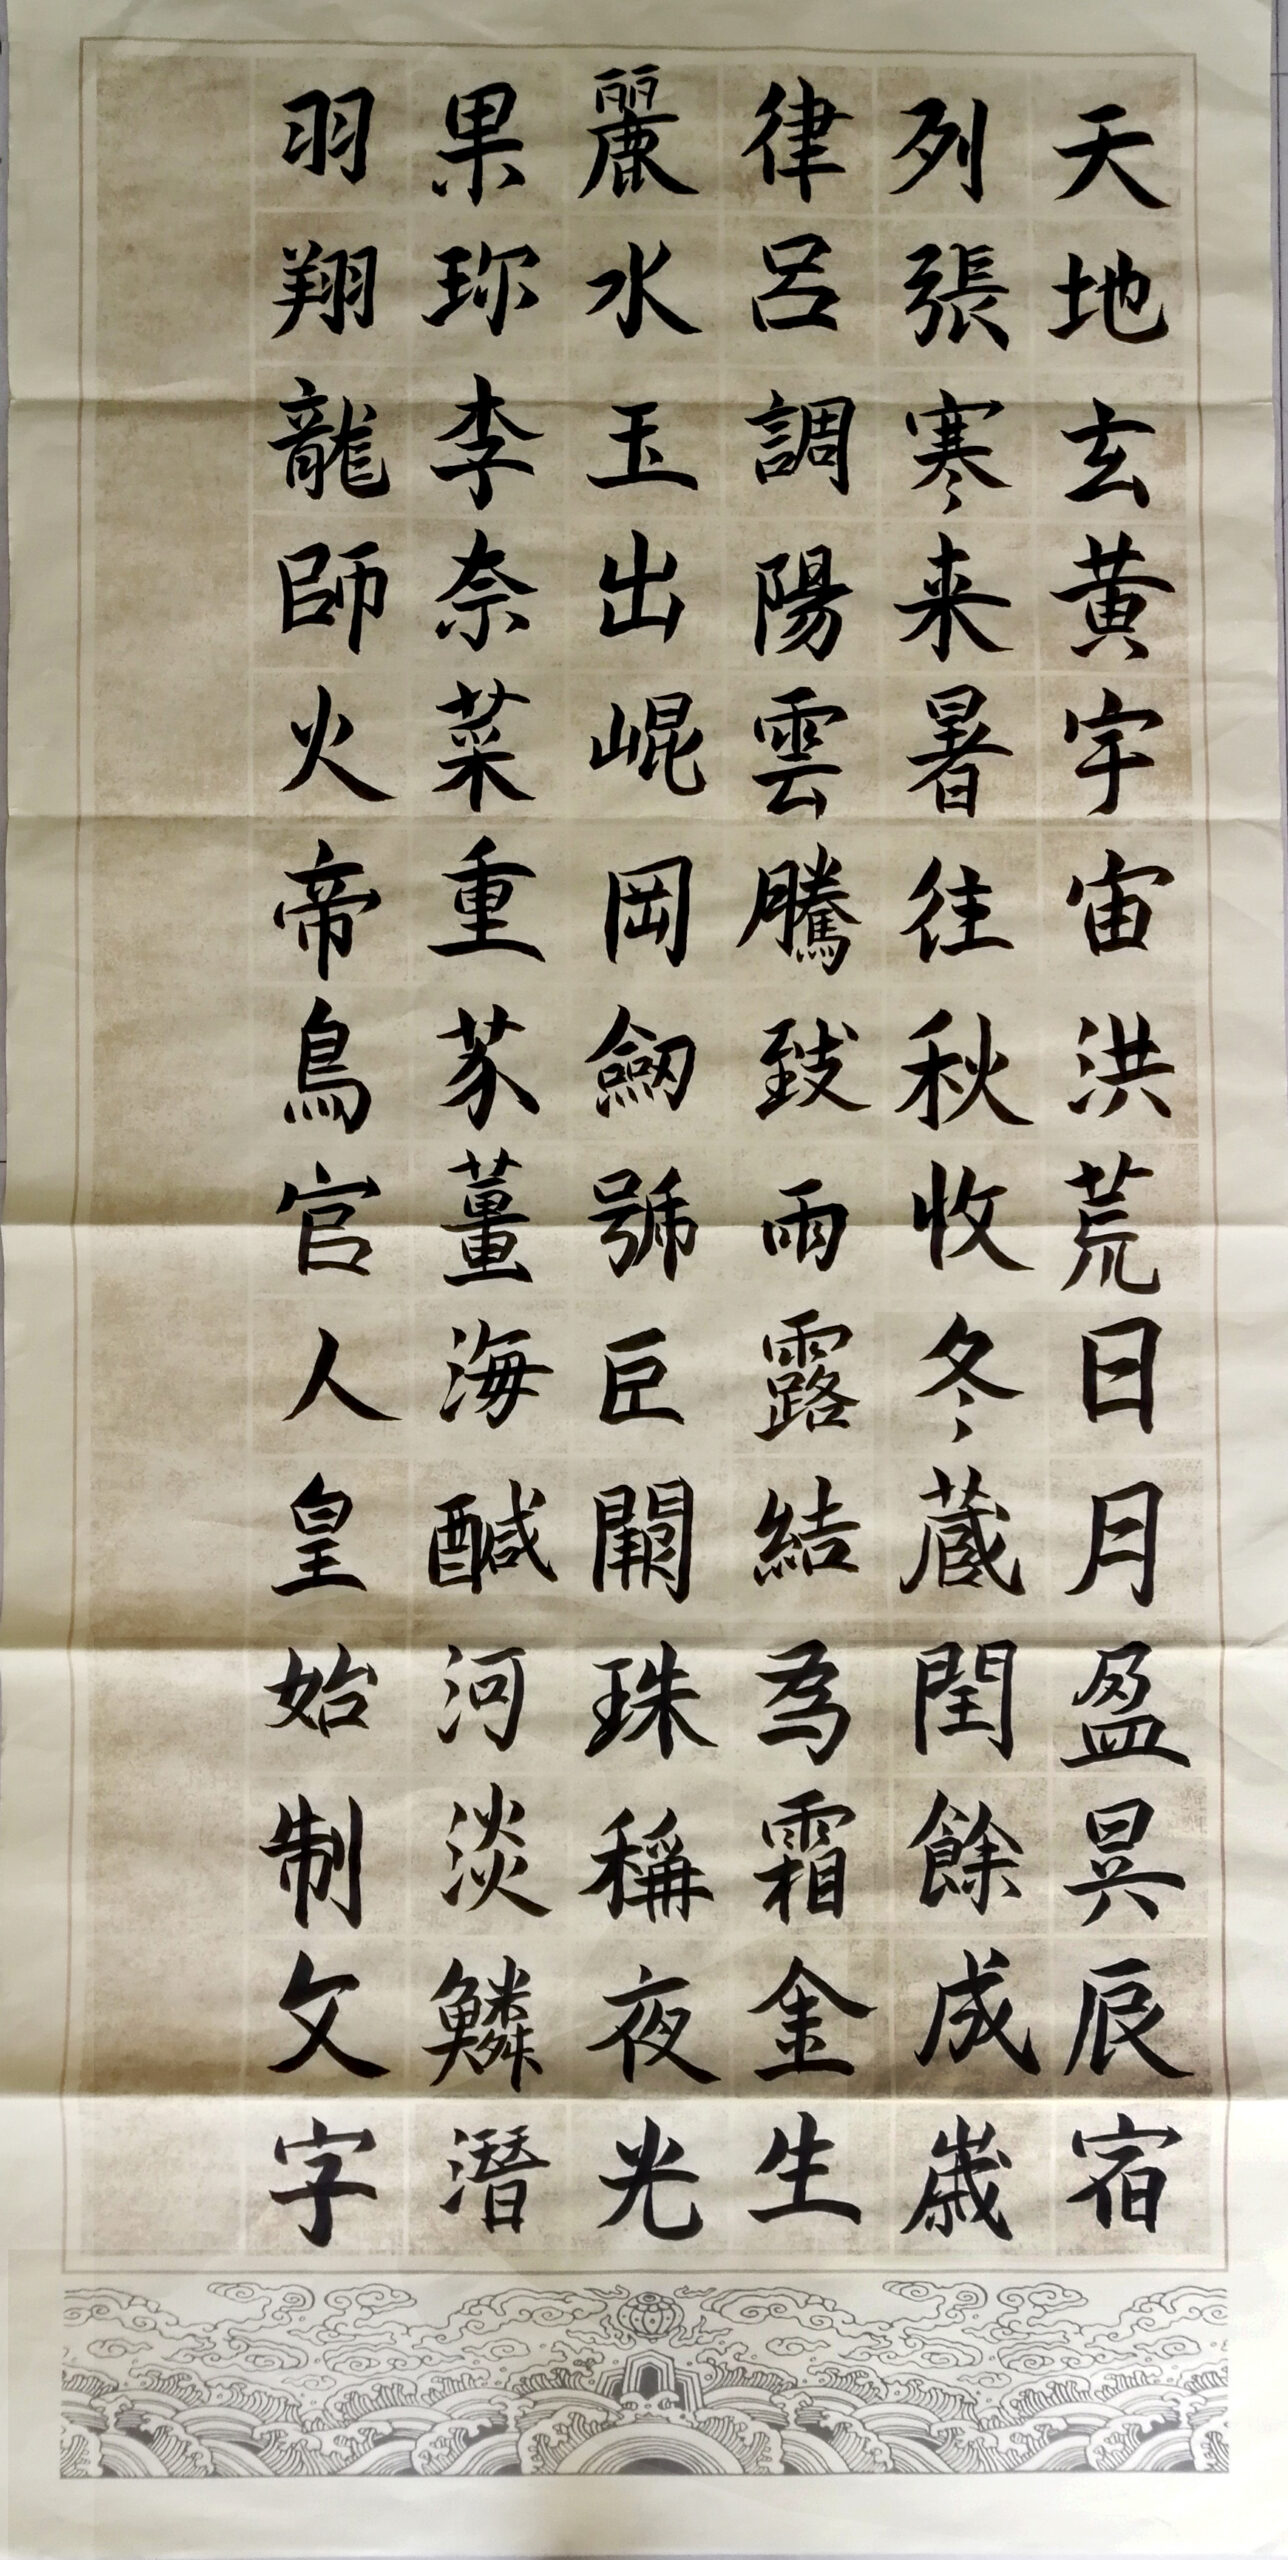 天地玄黄宇宙洪荒日月盈昃辰宿
列張寒来暑往秋收冬蔵閏餘成歲
律呂調陽雲騰致雨露結為霜金生
麗水玉出崐岡劒號巨闕珠稱夜光
果珎李奈菜重芥薑海醎河淡鱗潛
羽翔龍師火帝鳥官人皇始制文字